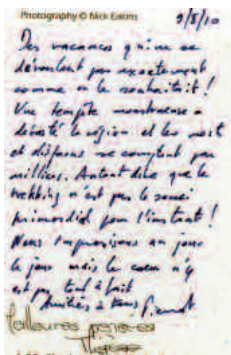 Photography © Nick Eakins
9/8/10
Des vacances qui ne se
déroulent pas exactement
comme on le souhaitait !
Une tempête monstrueuse a
dévasté la région et les morts
et disparus se comptent par
milliers. Autant dire que le
trekking n'est pas le souci
primordial pour l'instant !
Nous improvisons au jour
le jour mais le cœur n'y
est pas tout à fait
Amitiés à tous
Meilleures pensées
Thérèse